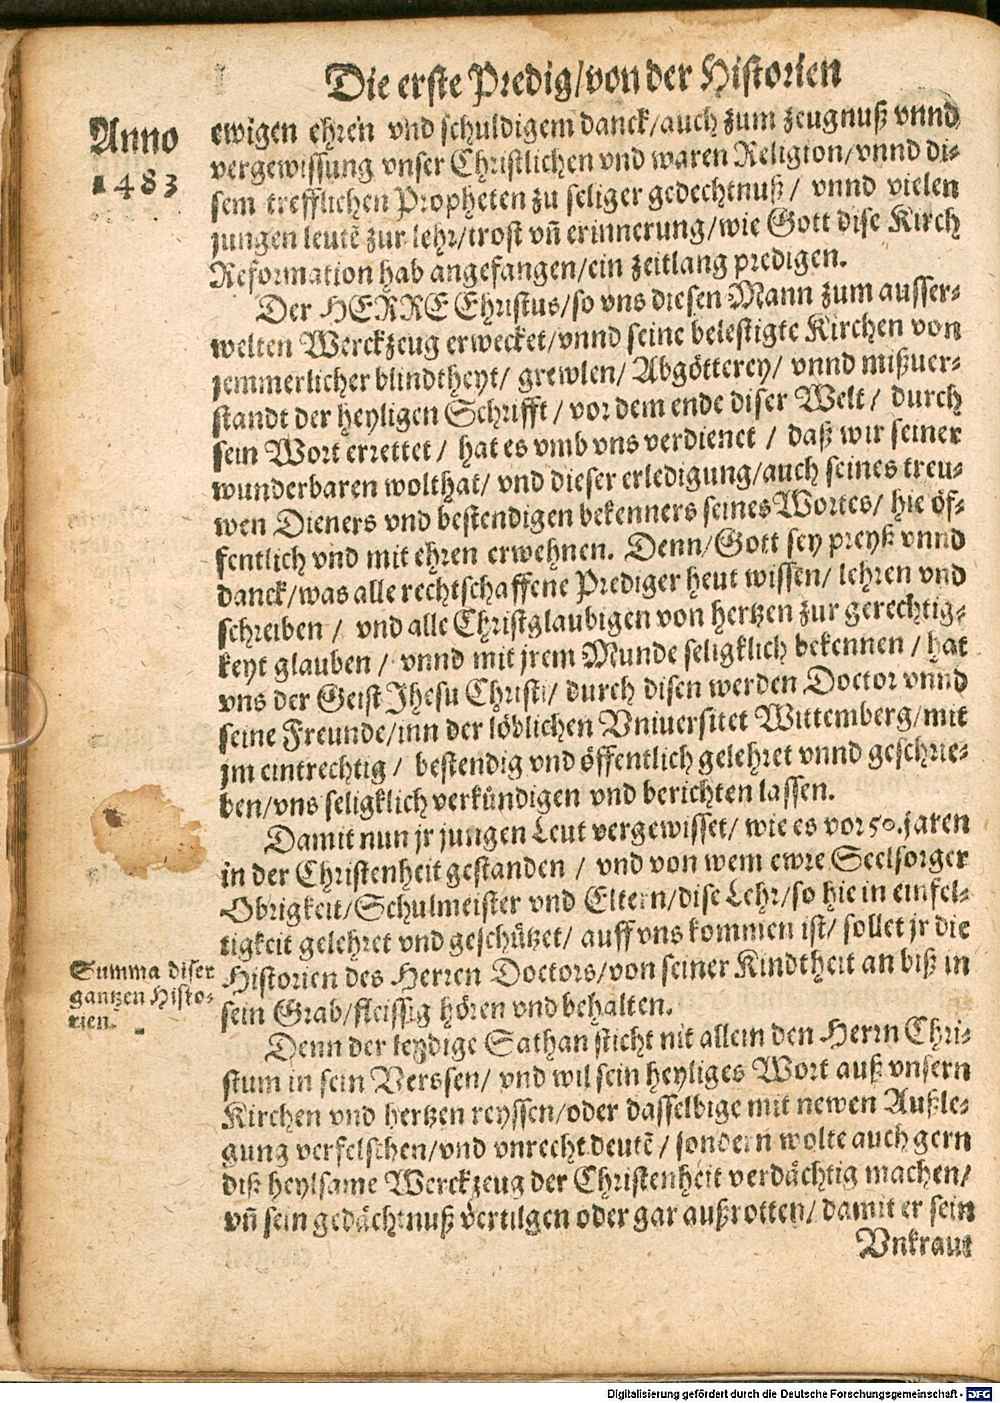 Die erste Predig/von der Historien
Anno
1483
ewigen ehren vnd schuldigem danck/auch zum zeugnuß vnnd
vergewissung vnser Christlichen vnd waren Religion/vnnd di-
sem trefflichen Propheten zu seliger gedechtnuß/ vnnd vielen
jungen leutẽ zur lehr/trost vñ erinnerung/wie Gott dise Kirch
Reformation hab angefangen/ein zeitlang predigen.
Der HERRE Christus/so vns diesen Mann zum ausser-
welten Werckzeug erwecket/vnnd seine belestigte Kirchen von
jemmerlicher blindtheyt/ grewlen/ Abgötterey/ vnnd mißuer-
standt der heyligen Schrifft / vor dem ende diser Welt / durch
sein Wort errettet / hat es vmb vns verdienet / daß wir seiner
wunderbaren wolthat/ vnd dieser erledigung/auch seines treu-
wen Dieners vnd bestendigen bekenners seines Wortes/ hie öf-
fentlich vnd mit ehren erwehnen. Denn/Gott sey preyß vnnd
danck/was alle rechtschaffene Prediger heut wissen/ lehren vnd
schreiben / vnd alle Christglaubigen von hertzen zur gerechtig-
keyt glauben / vnnd mit jrem Munde seligklich bekennen / hat
vns der Geist Jhesu Christi/ durch disen werden Doctor vnnd
seine Freunde/inn der löblichen Vniuersitet Wittemberg/mit
jm eintrechtig / bestendig vnd öffentlich gelehret vnnd geschrie-
ben/vns seligklich verkündigen vnd berichten lassen.
Damit nun jr jungen Leut vergewisset/ wie es vor 50. jaren
in der Christenheit gestanden / vnd von wem ewre Seelsorger
Obrigkeit/Schulmeister vnd Eltern/dise Lehr/so hie in einfel-
tigkeit gelehret vnd geschützet/ auff vns kommen ist/ sollet jr die
Summa diser
gantzen Histo-
rien.
Historien des Herren Doctors/von seiner Kindtheit an biß in
sein Grab/fleissig hören vnd behalten.
Denn der leydige Sathan sticht nit allein den Herrn Chri-
stum in sein Verssen/ vnd wil sein heyliges Wort auß vnsern
Kirchen vnd hertzen reyssen/oder dasselbige mit newen Außle-
gung verfelschen/vnd vnrecht deutẽ / sondern wolte auch gern
diß heylsame Werckzeug der Christenheit verdächtig machen/
vñ sein gedächtnuß vertilgen oder gar außrotten/ damit er sein
Vnkraut
Digitalisierung gefördert durch die Deutsche Forschungsgemeinschaft - DFG